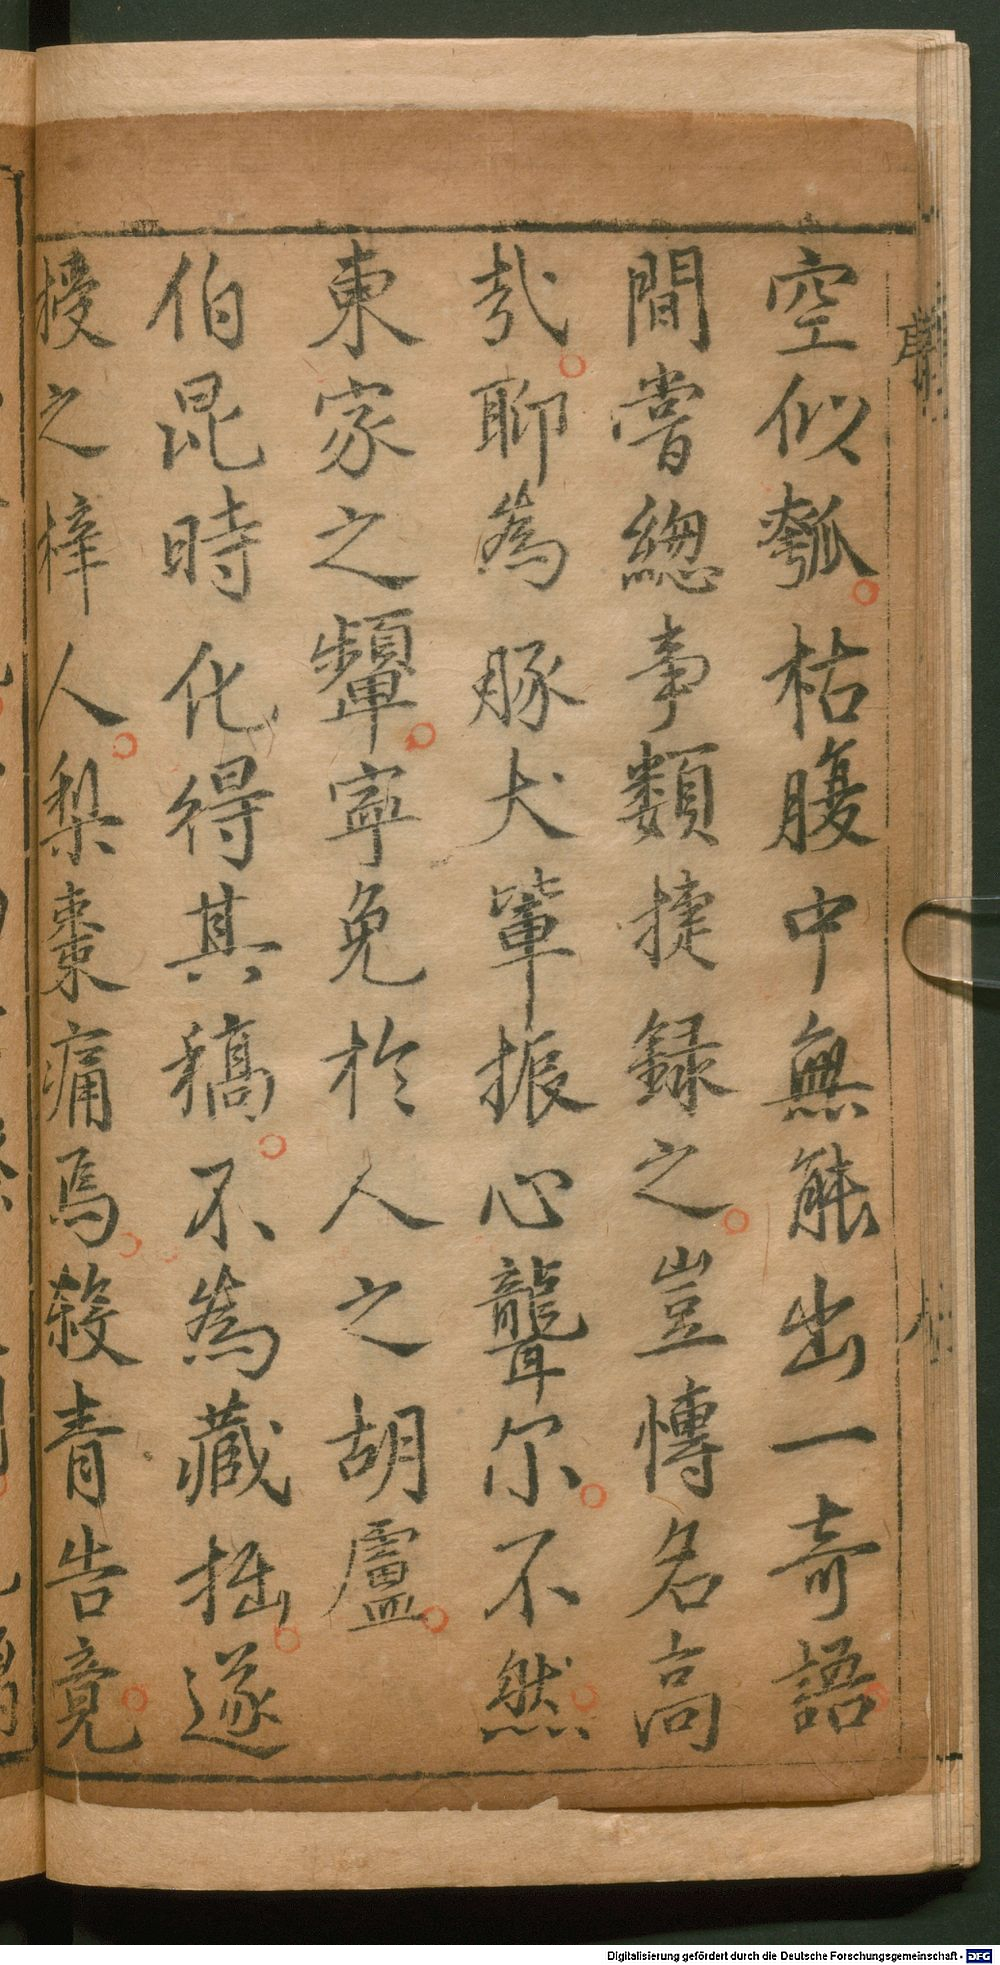 空似瓠枯腹中無能出一奇語
間嘗總事類捷錄之豈慱名高
㢤聊為豚犬軰振心聾尔不然
東家之顰寕免於人之胡盧
伯昆時化得其稿不為藏拙遂
授之梓人梨棗痛焉殺青告竟
Digitalisierung gefördert durch die Deutsche Forschungsgemeinschaft - DFG